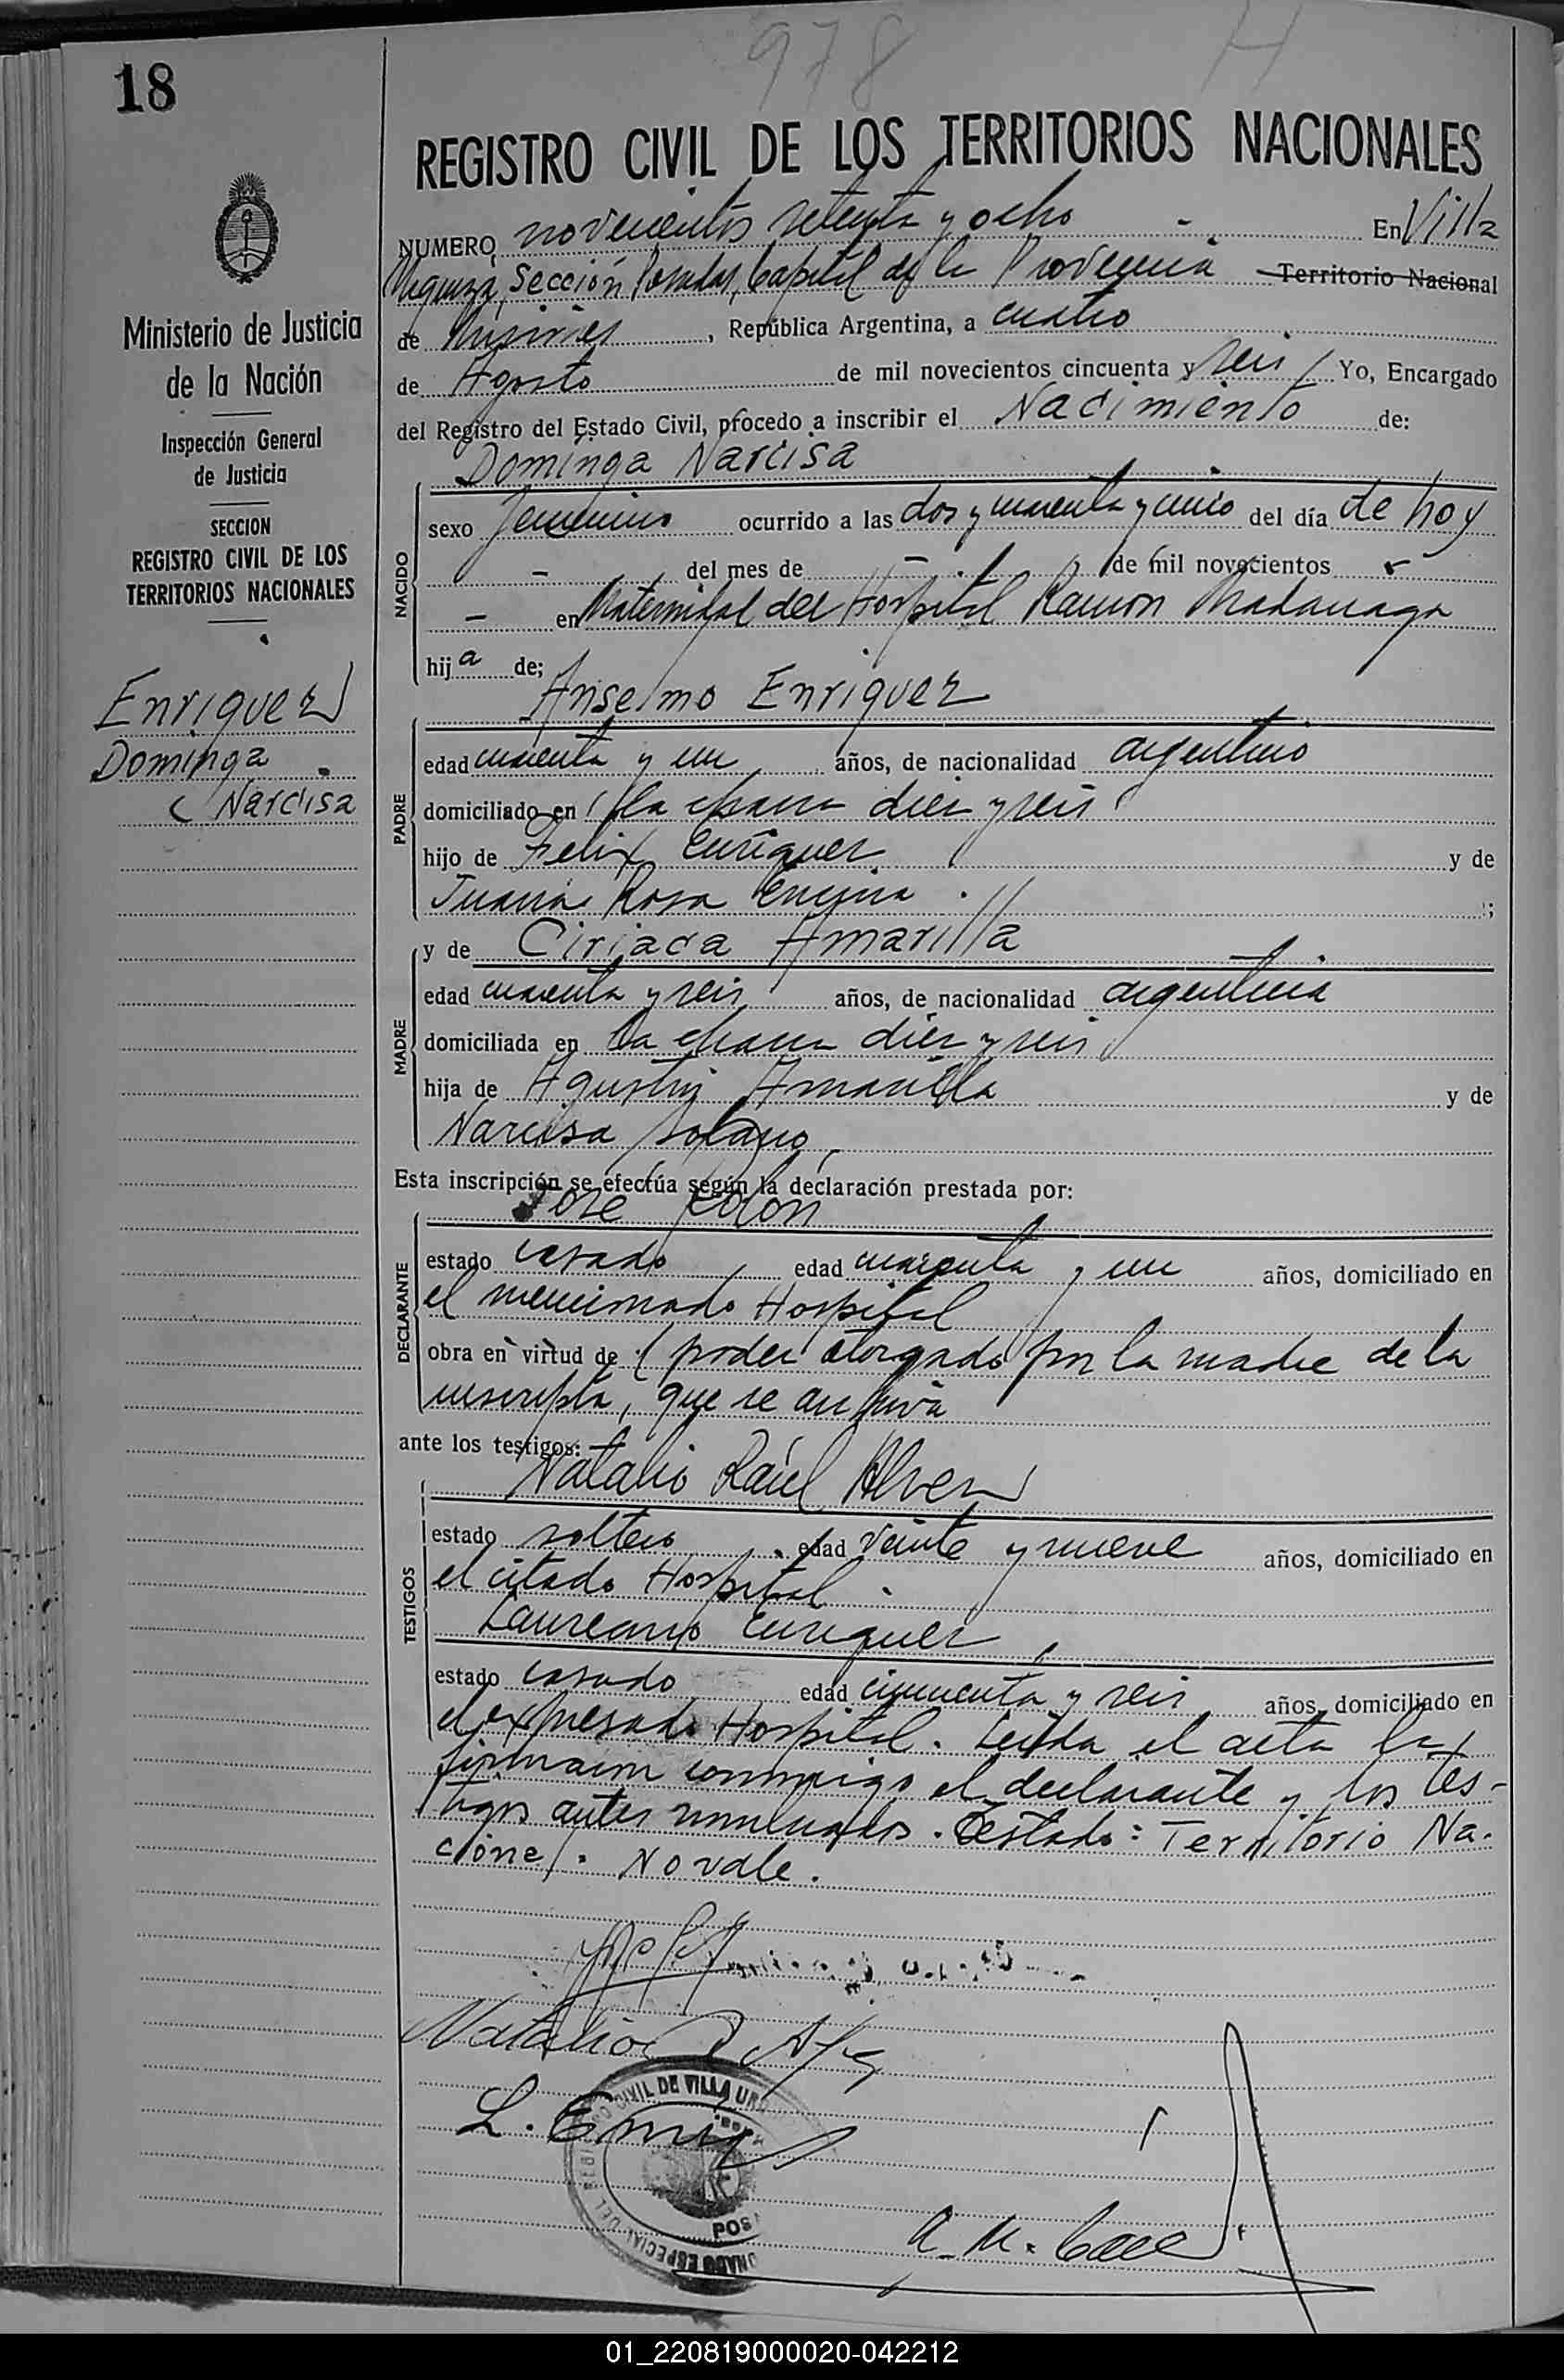 978 H
18
REGISTRO CIVIL DE LOS TERRITORIOS NACIONALES
NUMERO novecientos setenta y ocho - En Villa
Sección Posadas, Capital de la Provincia Territorio Nacional
de Misiones, República Argentina, a cuatro
de Agosto de mil novecientos cincuenta y seis Yo, Encargado
del Registro del Estado Civil, procedo a inscribir el Nacimiento de:
Dominga Narcisa
NACIDO
sexo femenino ocurrido a las dos y cuarenta y cinco del día de hoy
- del mes de - de mil novecientos -
- en Maternidad del Hospital Ramon Madariaga
hija de;
Anselmo Enriquez
PADRE
edad cuarenta y un años, de nacionalidad argentino
domiciliado en la chacra diez y seis
hijo de Felix Enriquez y de
Juana Rosa Encina ;
y de Ciriaca Amarilla
MADRE
edad cuarenta y seis años, de nacionalidad argentina
domiciliada en la chacra diez y seis
hija de Agustin Amarilla y de
Narcisa Solano
Esta inscripción se efectúa según la declaración prestada por:
Jose
DECLARANTE
estado casado edad cuarenta y un años, domiciliado en
el mencionado Hospital
obra en virtud de poder otorgado por la madre de la
inscripta, que se archiva
ante los testigos:
Natalio Raúl Alvez
TESTIGOS
estado soltero edad veinte y nueve años, domiciliado en
el citado Hospital.
Laureano Enriquez
estado casado edad cincuenta y seis años, domiciliado en
el expresado Hospital. Leida el acta la
firmaron conmigo el declarante y los tes-
tigos antes nombrados. Testado: Territorio Na-
cional. No vale.
Natalio R.
L. Enriq
CIVIL DE VILLA UR
POS
ESPECIAL DEL REGI
Ministerio de Justicia
de la Nación
Inspección General
de Justicia
SECCION
REGISTRO CIVIL DE LOS
TERRITORIOS NACIONALES
Enriquez
Dominga
Narcisa
01_220819000020-042212